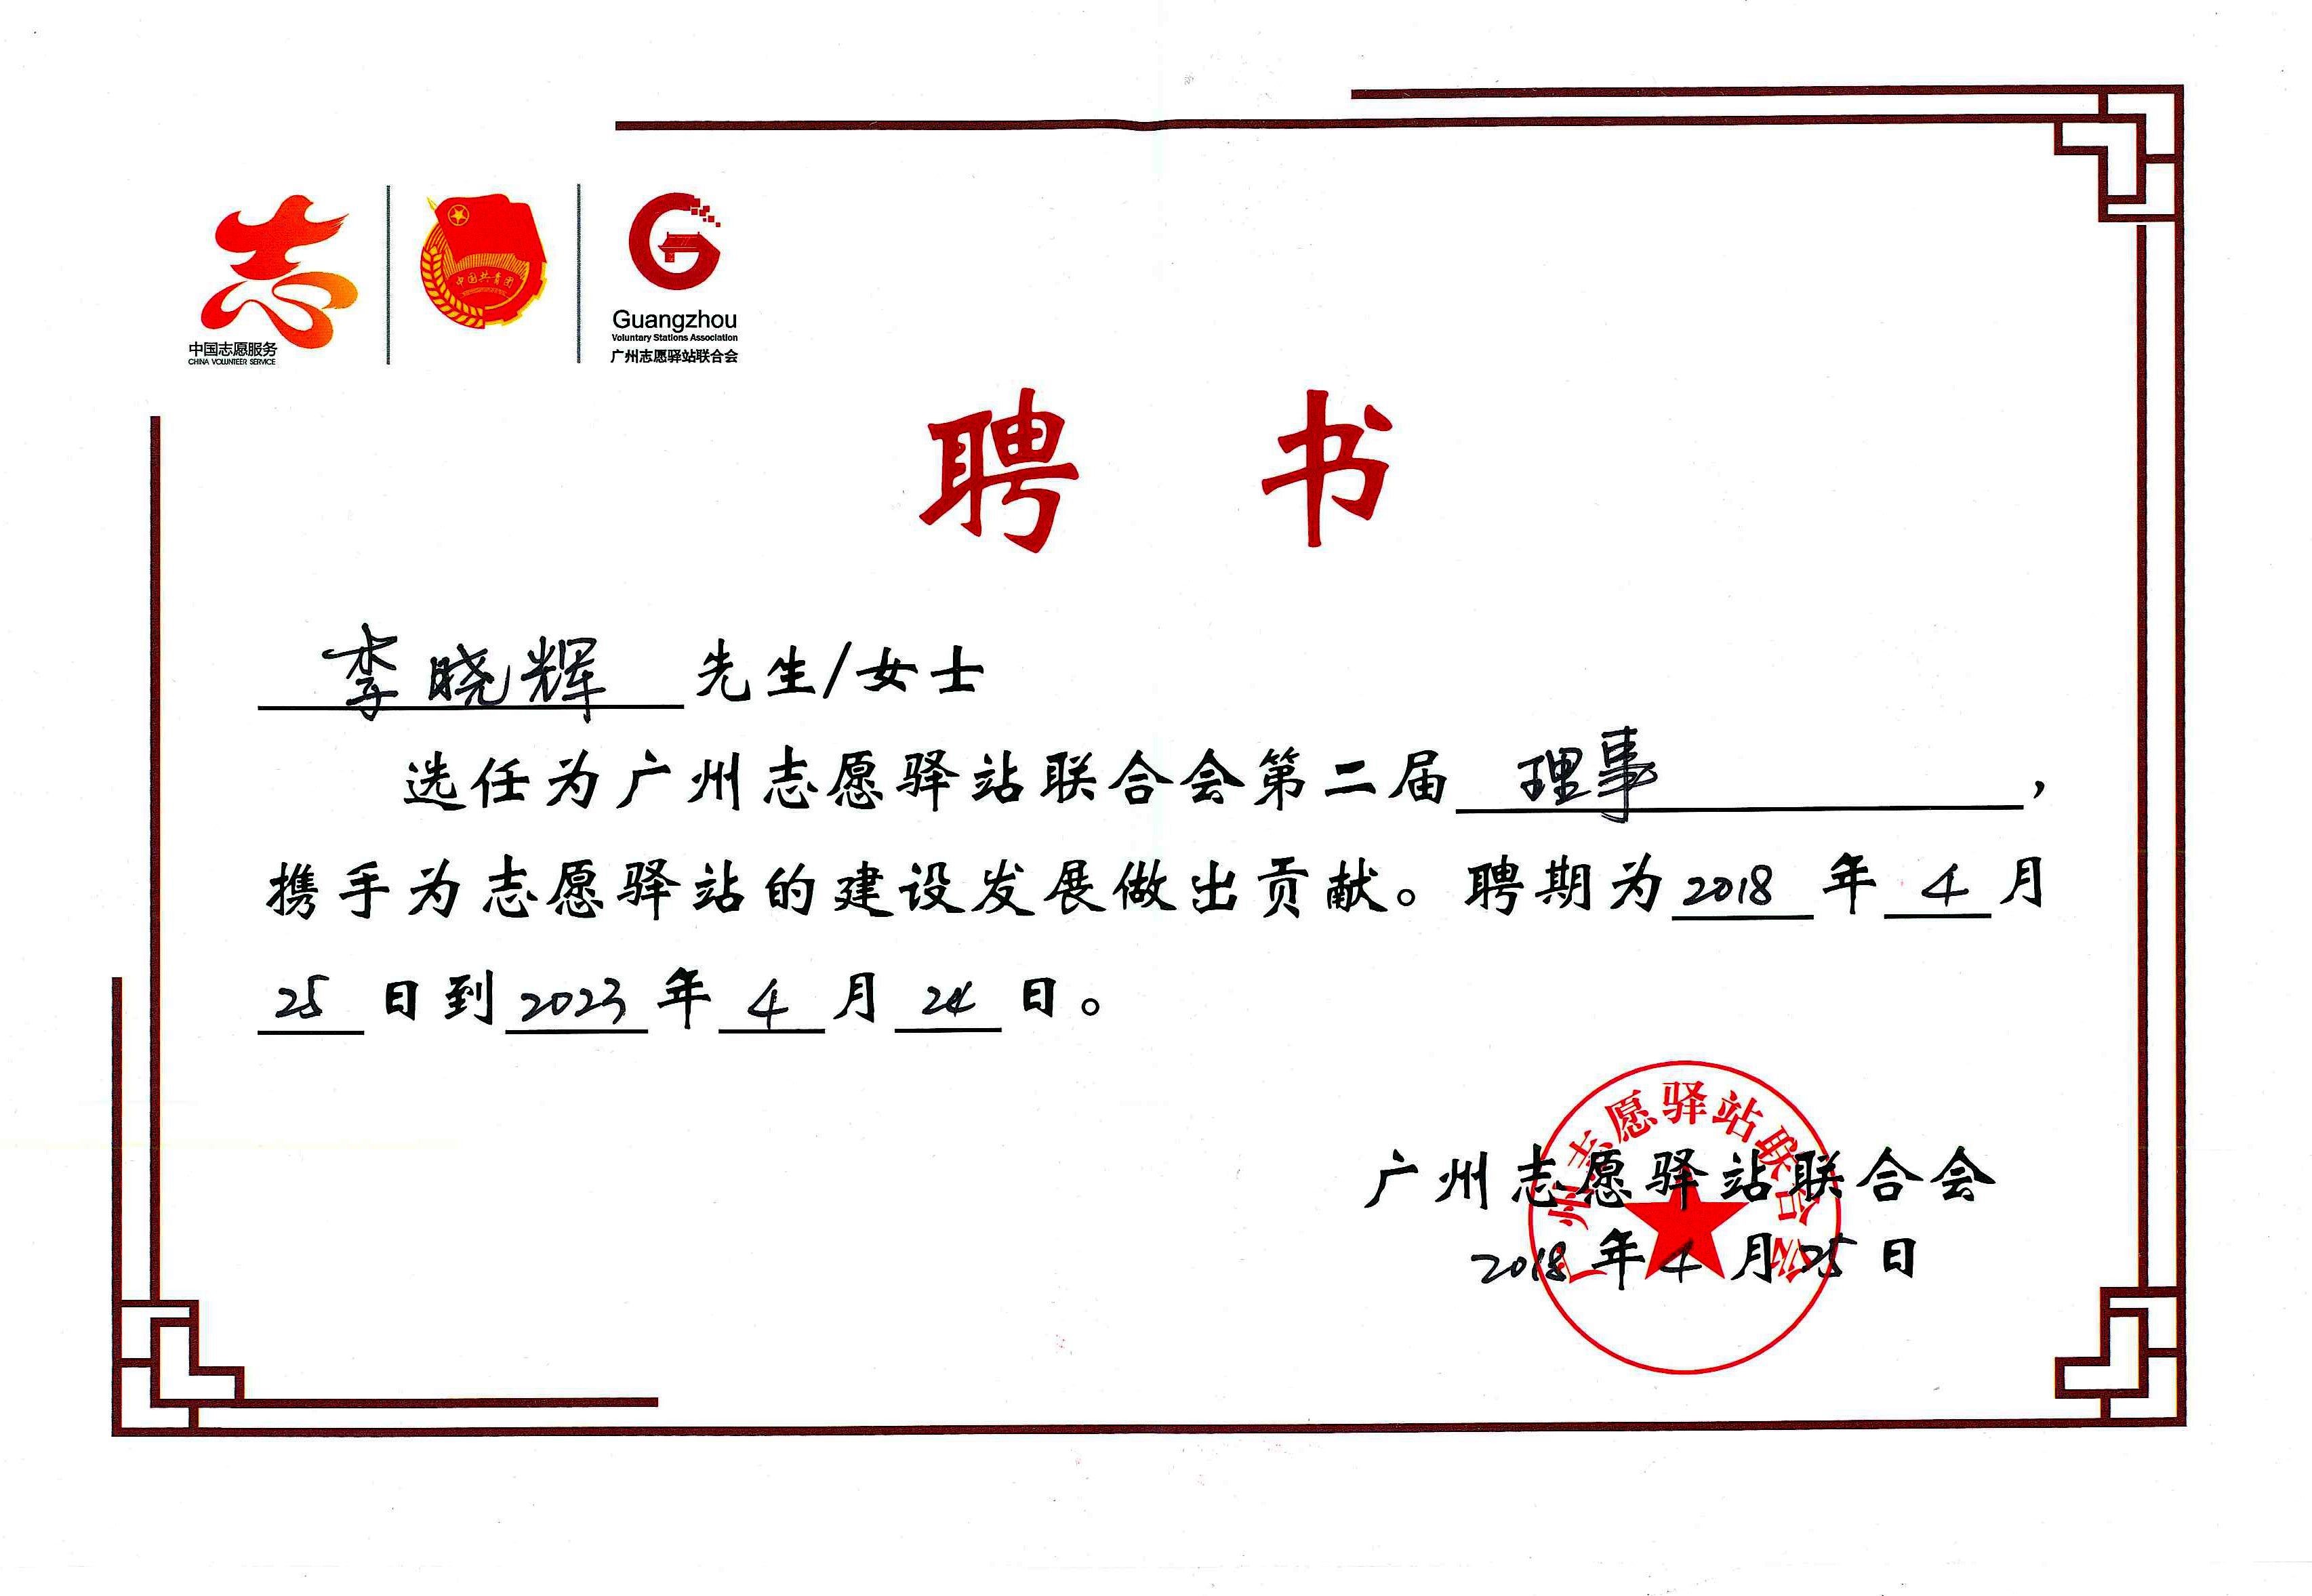 中国志愿服务
CHINA VOLUNTEER SERVICE
中国共青团
Guangzhou
Voluntary Stations Association
广州志愿驿站联合会
聘 书
李晓辉 先生/女士
选任为广州志愿驿站联合会第二届 理事 ，
携手为志愿驿站的建设发展做出贡献。聘期为 2018 年 4 月
25 日到 2023 年 4 月 24 日。
广州志愿驿站联合会
广州志愿驿站联合会
2018 年 4 月 25 日